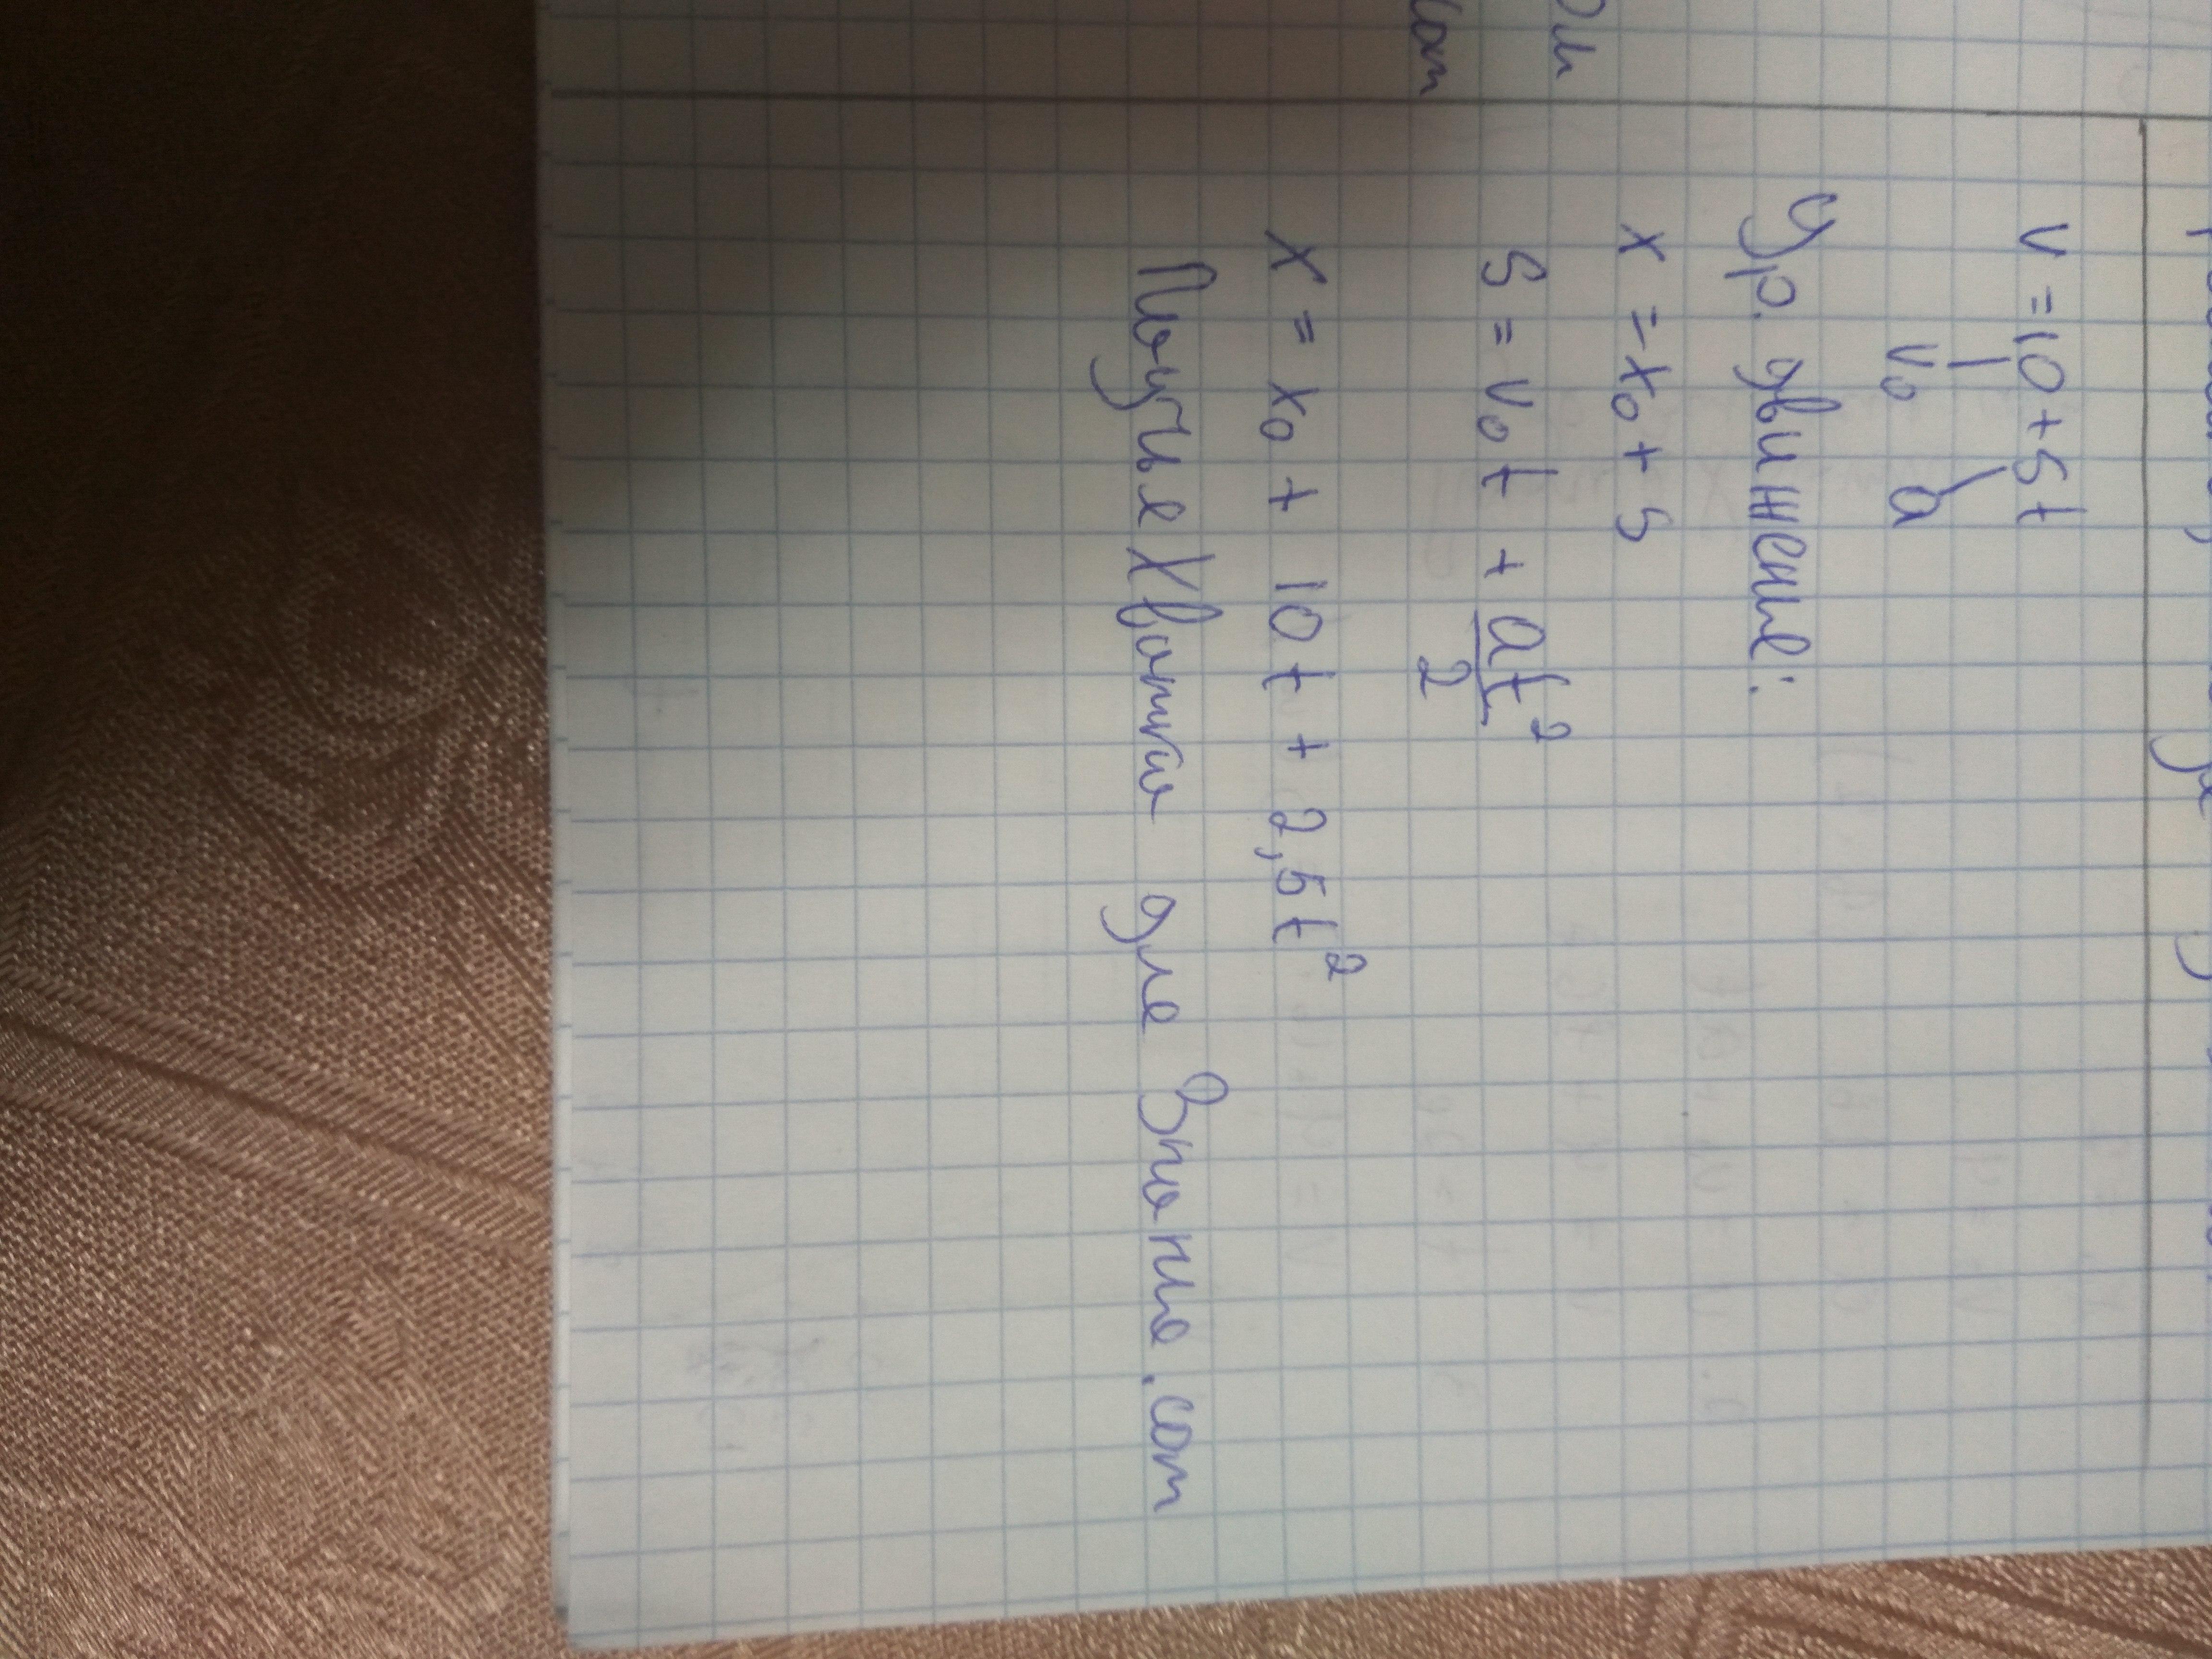 v = 10 + 5t
v₀ a
Ур. движение:
x = x₀ + S
S = v₀t + at²/2
x = x₀ + 10t + 2,5t²
для Знание.com